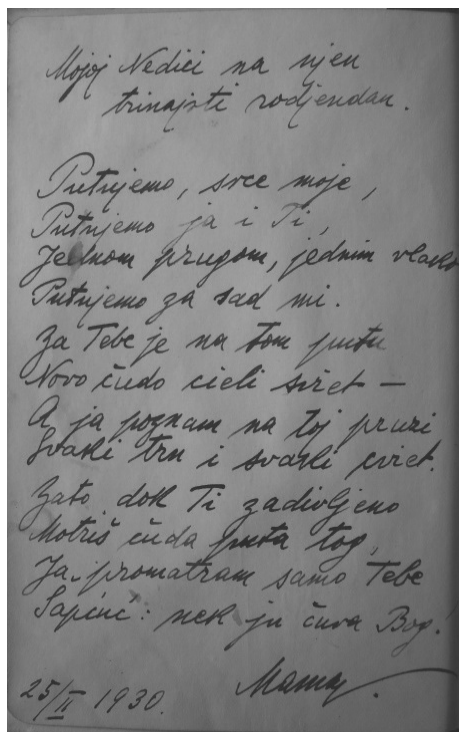 Mojoj Nedici na njen
trinajsti rodjendan.
Putujemo, srce moje,
Putujemo ja i Ti,
Jednom prugom, jednim vlakom
Putujemo za sad mi.
Za Tebe je na tom putu
Novo čudo cieli sviet —
A ja poznam na toj pruzi
Svaki trn i svaki cviet.
Zato dok Ti zadivljeno
Motriš čuda puta tog,
Ja promatram samo Tebe
Šapćuć: nek ju čuva Bog!
Mama.
25/II 1930.